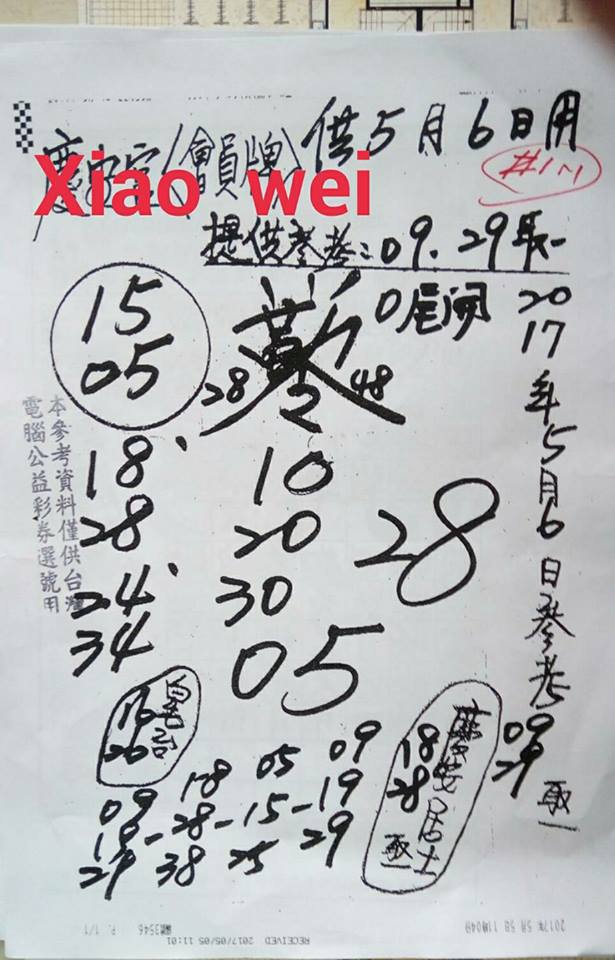 (會員牌) 供5月6日用
Xiao wei
提供參考：09．29取一
0尾闲
15
05
28
48
18
28
24
34
10
20
30
28
05
2017年5月6日參考
09
29
取一
本參考資料僅供台灣
電腦公益彩券選號用
16
26
09 18 05 09
19 - 28 - 15 - 19
29 38 25 29
慶安居士
18
28
取一
2017年 5月 5日 11時04分
3546 P. 1/1
RECEIVED 2017/05/05 11:01